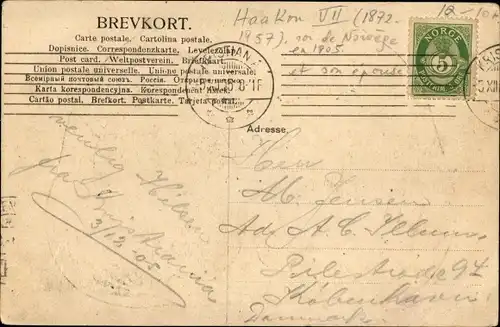 BREVKORT.
Carte postale. Cartolina postale.
Dopisnice. Correspondenzkarte. Levelezö
Post card. Weltpostverein. Briefkart.
Union postale universelle. Unione postale universale.
Всемірный почтовый союз. Россія.
Karta korespondencyjna. Korespondent
Cartão postal. Brefkort. Postkarte. Tarjeta postal.
Haakon VII (1872-
1957), roi de Norvège
en 1905
et son épouse
NORGE
5
8-1
5 XII
Adresse.
venlig Hilsen
fra Kristiania
3/12 05
Herr
M. Jensen
Adr A. C. Illum
Pilestræde 94
København
Danmark